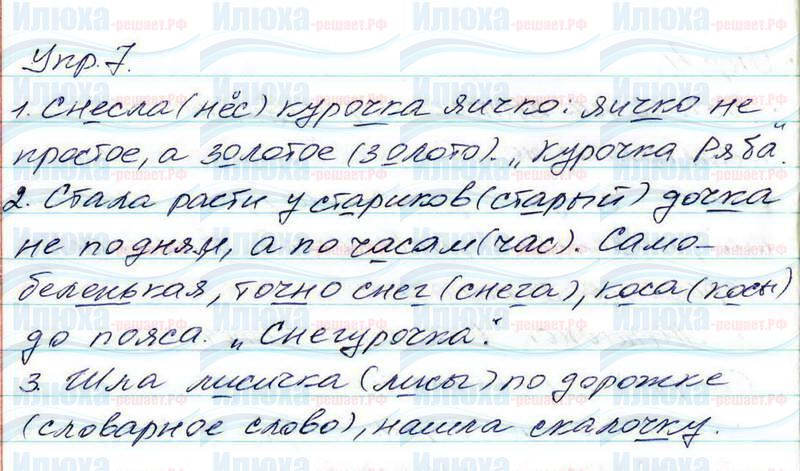 Упр. 7.
1. Снесла (нёс) курочка яичко: яичко не
простое, а золотое (золото). „Курочка Ряба".
2. Стала расти у стариков (старый) дочка
не по дням, а по часам (час). Сама-
беленькая, точно снег (снега), коса (косы)
до пояса. „Снегурочка".
3. Шла лисичка (лисы) по дорожке
(словарное слово), нашла скалочку.